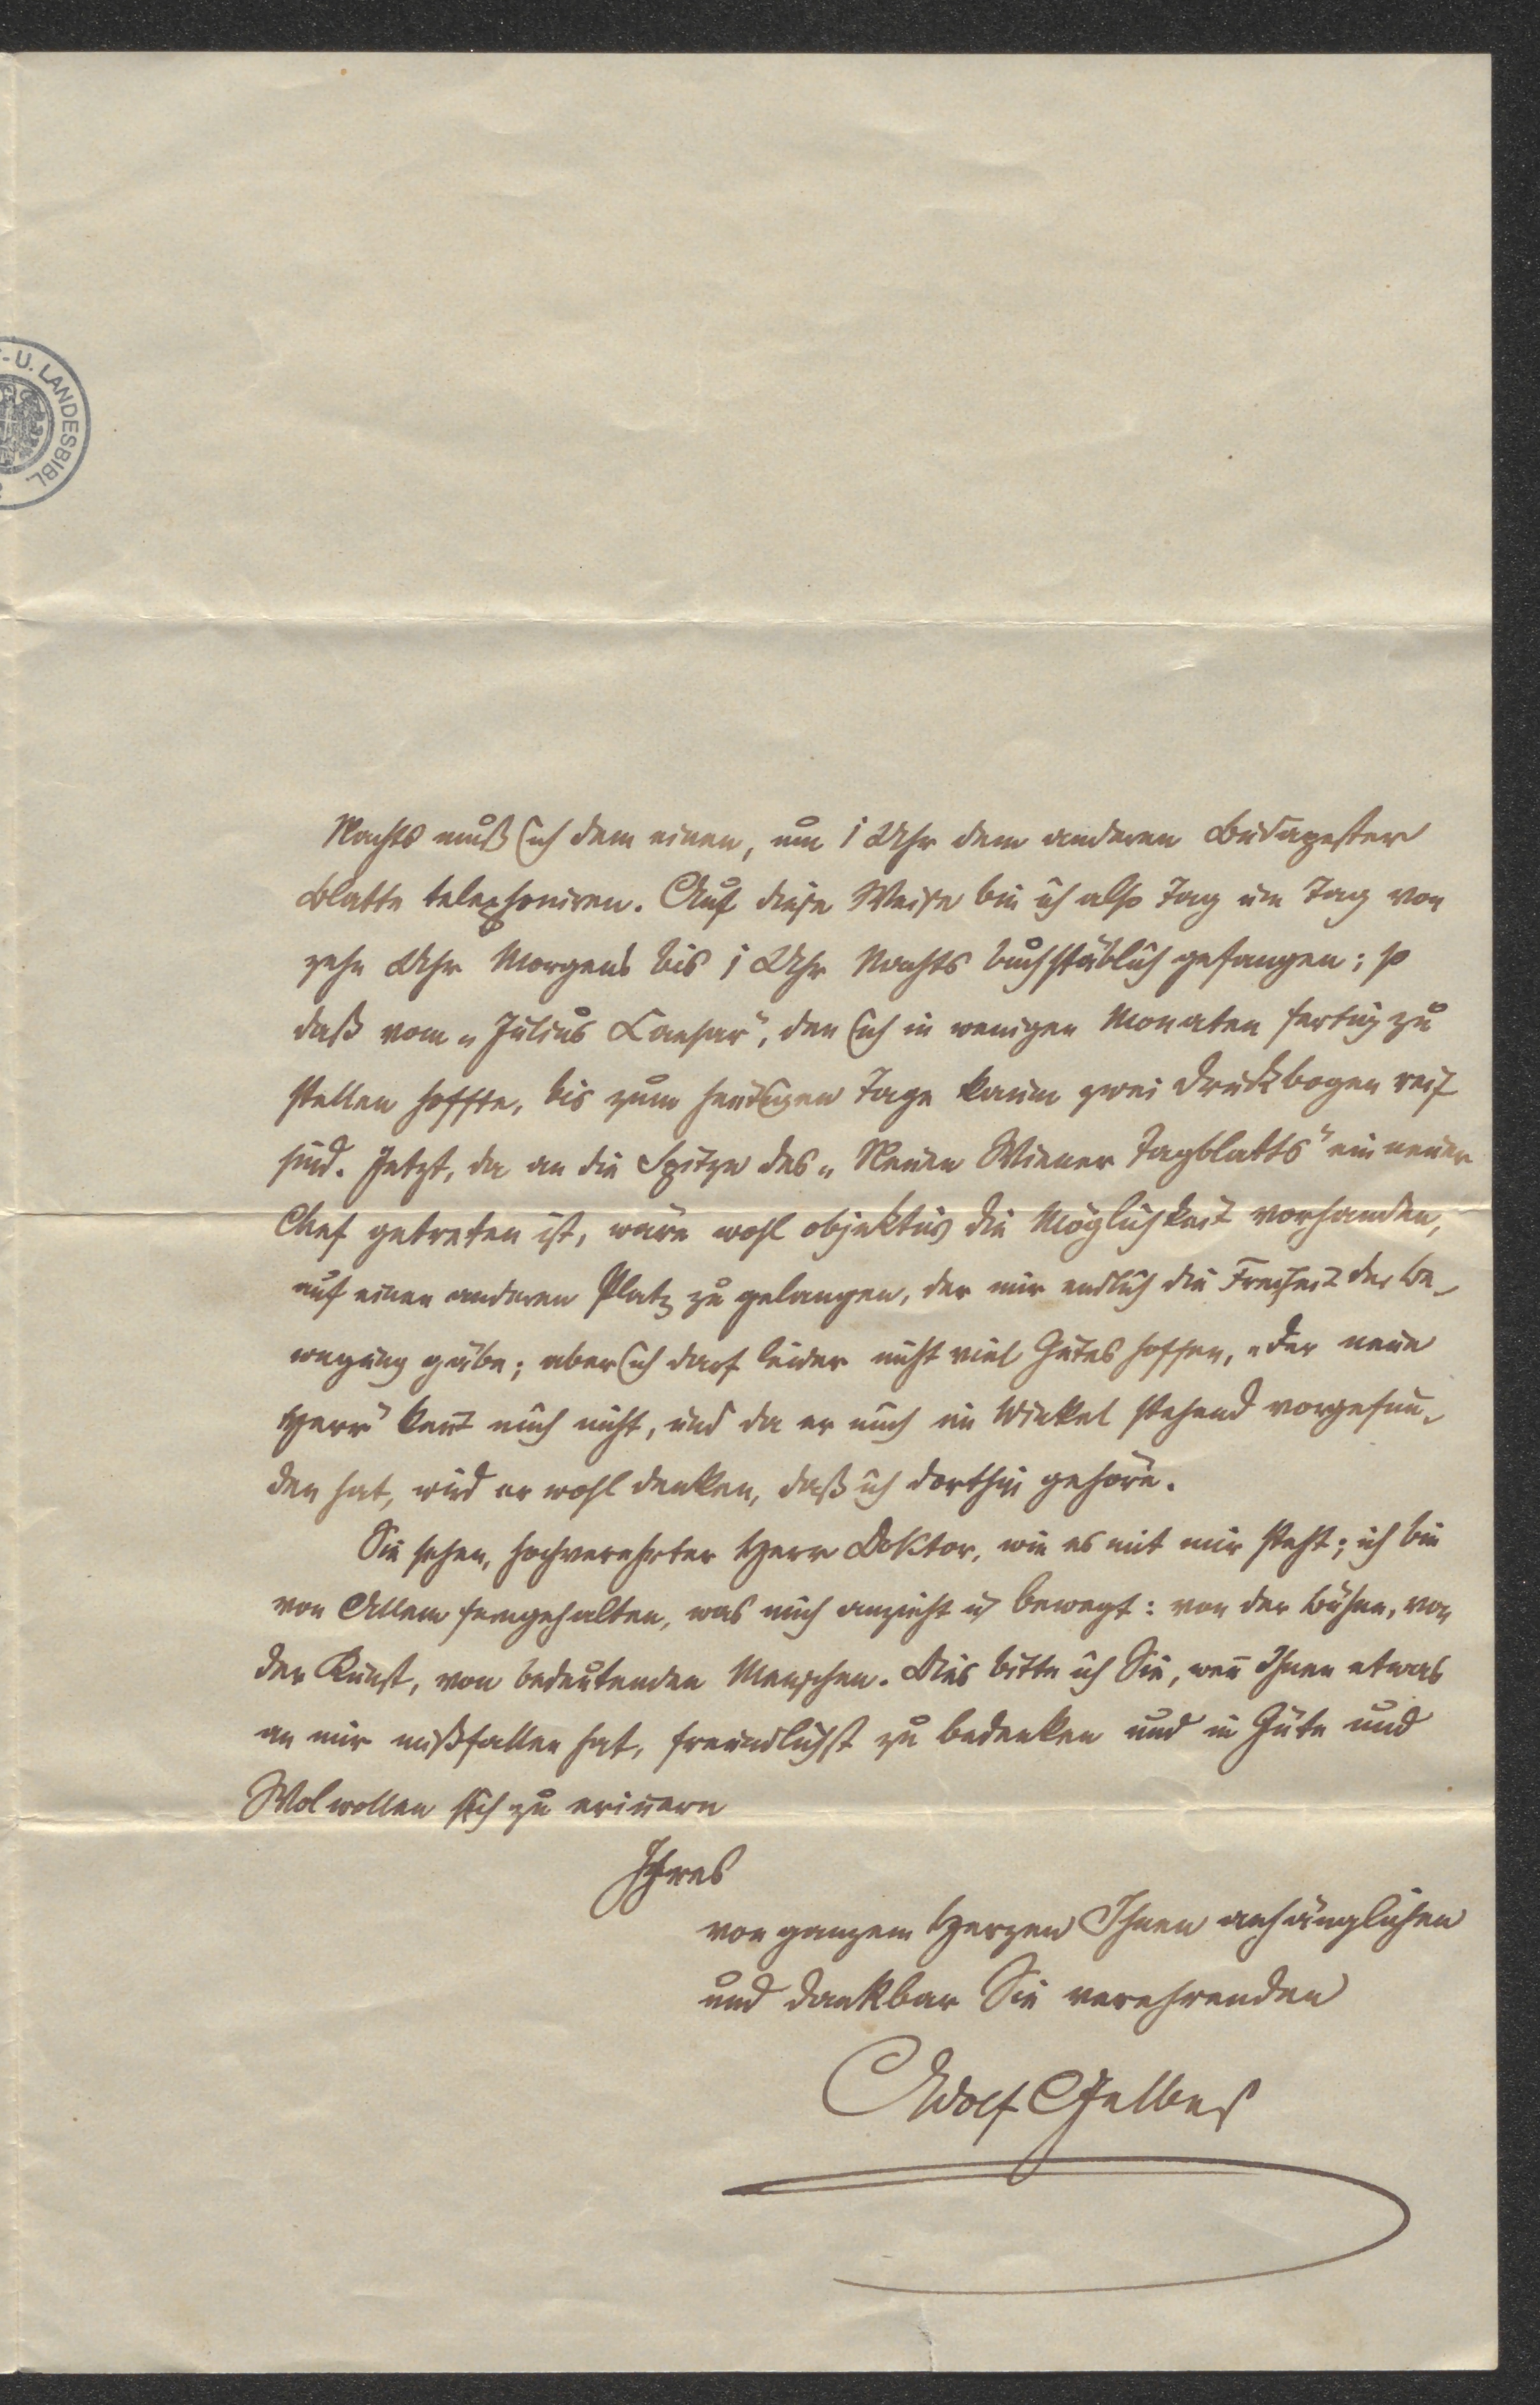 - U. LANDESBIBL.
Nachts muß ich dem einen, um 1 Uhr dem anderen Budapester
Blatte telephoniren. Auf diese Weise bin ich also Tag um Tag von
zehn Uhr Morgens bis 1 Uhr Nachts buchstäblich gefangen; so
daß vom „Julius Caesar", den ich in wenigen Monaten fertig zu
stellen hoffte, bis zum heutigen Tage kaum zwei Druckbogen reif
sind. Jetzt, da an die Spitze des „Neuen Wiener Tagblatts" ein neuer
Chef getreten ist, wäre wohl objektiv die Möglichkeit vorhanden,
auf einen anderen Platz zu gelangen, der mir endlich die Freiheit der Be-
wegung gäbe; aber ich darf leider nicht viel Gutes hoffen, „der neue
Herr" keñt mich nicht, und da er mich im Winkel stehend vorgefun-
den hat, wird er wohl denken, daß ich dorthin gehöre.
Sie sehen, hochverehrter Herr Doktor, wie es mit mir steht; ich bin
von Allem ferngehalten, was mich anzieht u bewegt: von der Bühne, von
der Kunst, von bedeutenden Menschen. Dies bitte ich Sie, weñ Ihnen etwas
an mir mißfallen hat, freundlichst zu bedenken und in Güte und
Wolwollen sich zu eriñern
Ihres
von ganzem Herzen Ihnen anhänglichen
und dankbar Sie verehrenden
Adolf Gelber